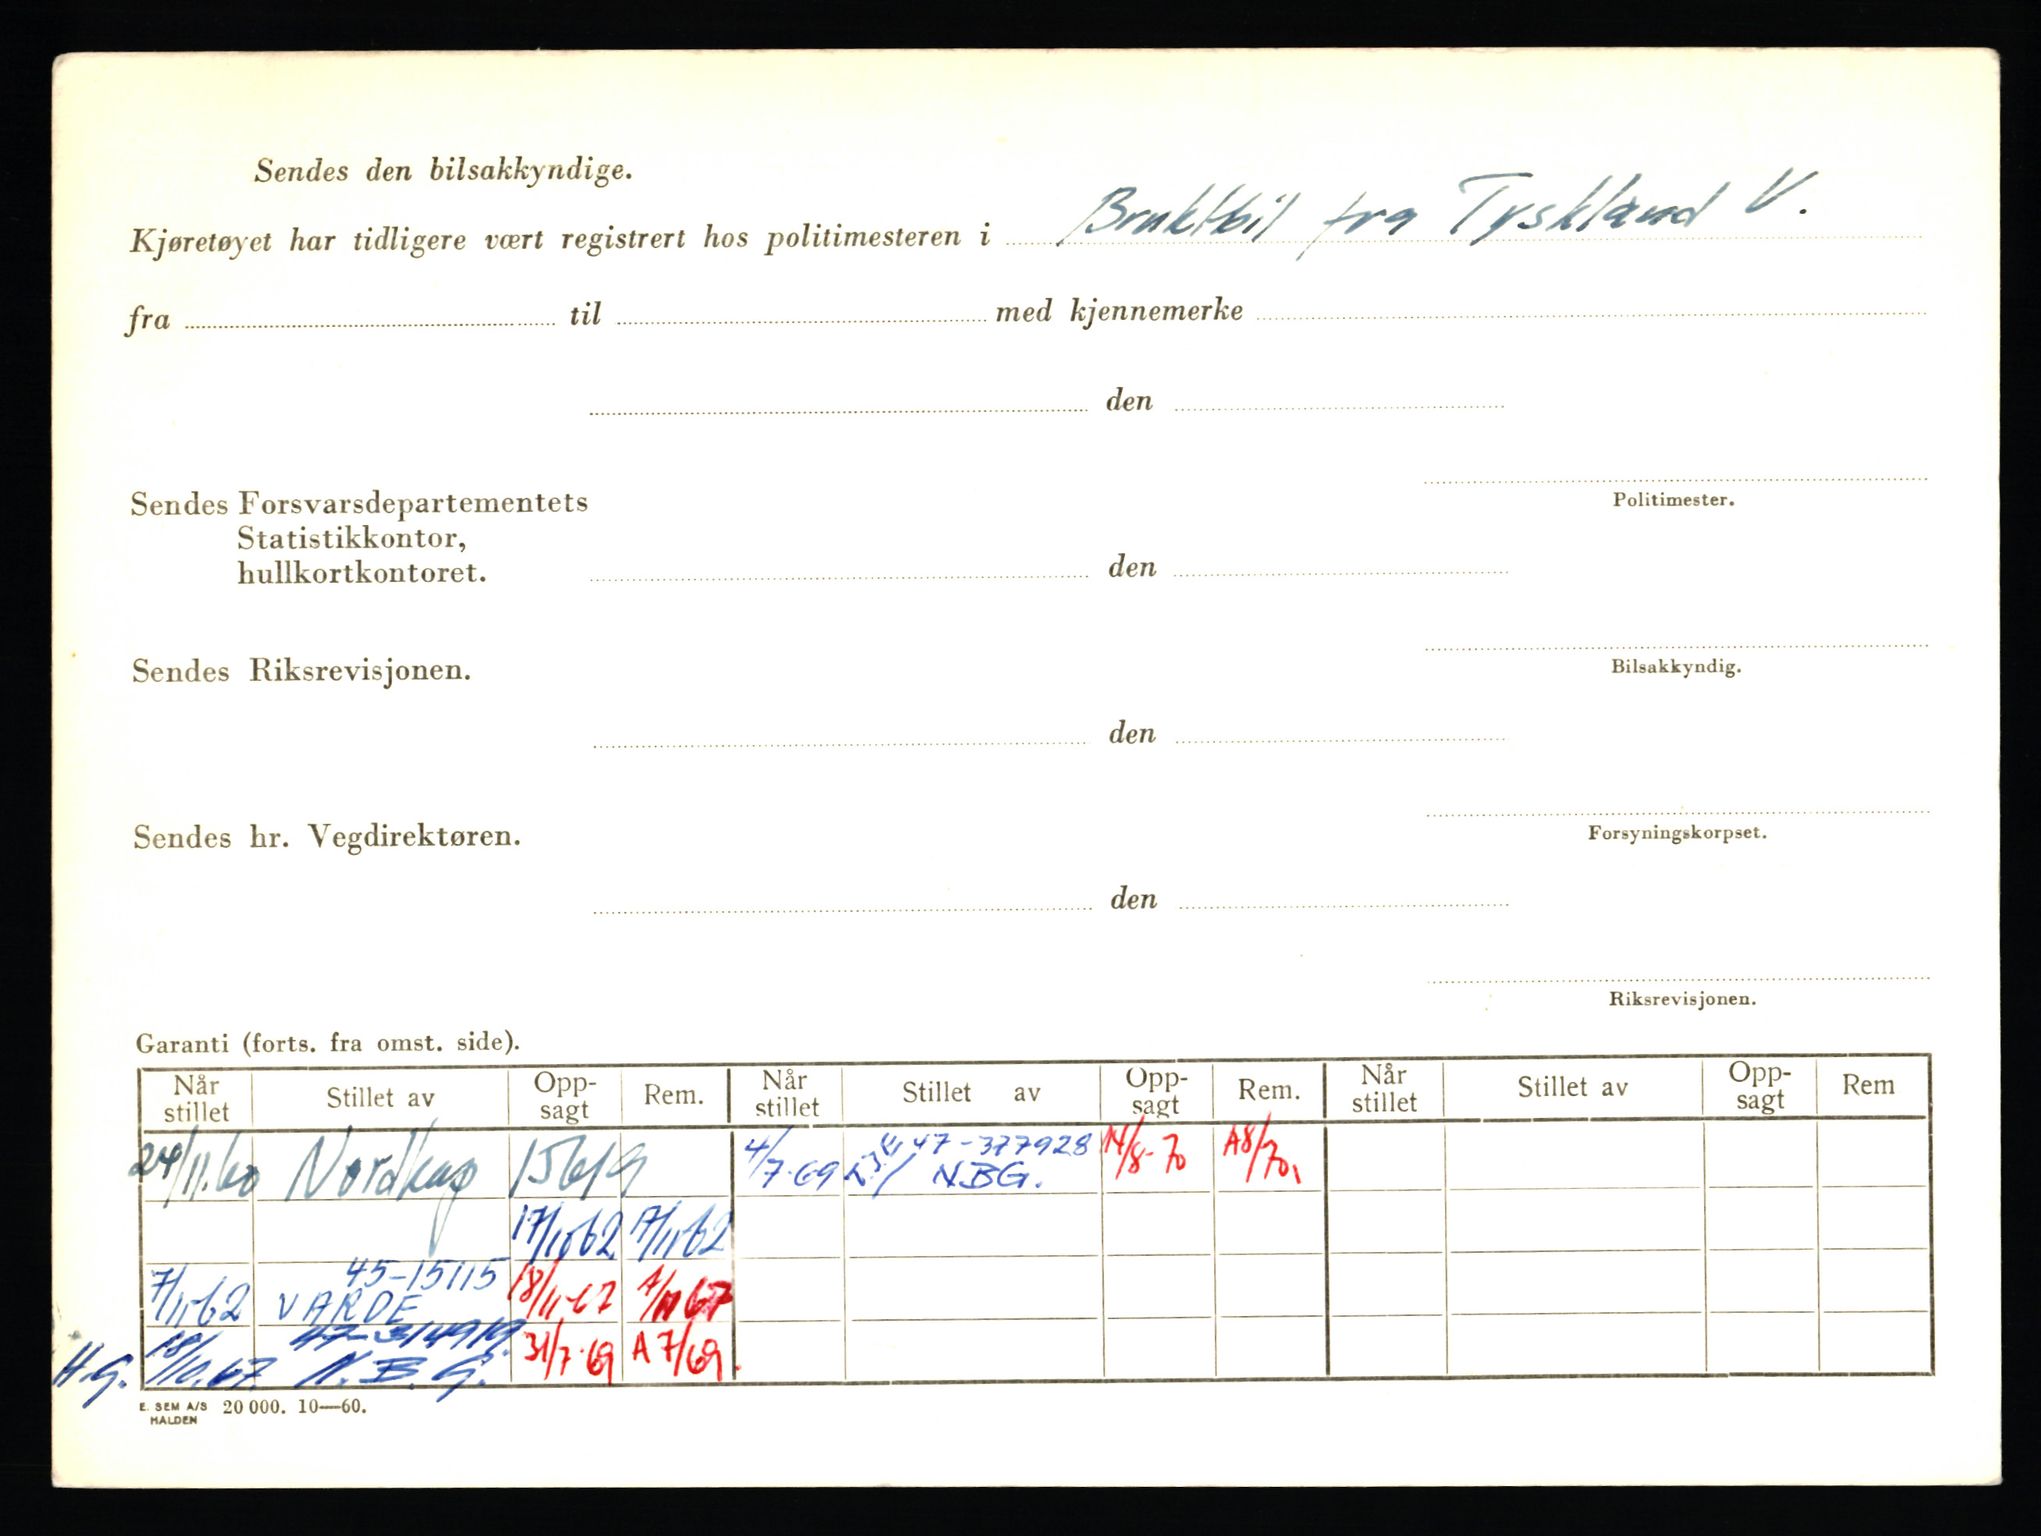 Sendes den bilsakkyndige.
Kjøretøyet har tidligere vært registrert hos politimesteren i Bruktbil fra Tyskland V.
fra til med kjennemerke
den
Politimester.
Sendes Forsvarsdepartementets
Statistikkontor,
hullkortkontoret.
den
Bilsakkyndig.
Sendes Riksrevisjonen.
den
Forsyningskorpset.
Sendes hr. Vegdirektøren.
den
Riksrevisjonen.
Garanti (forts. fra omst. side).
Når stillet Stillet av Opp-sagt Rem. Når stillet Stillet av Opp-sagt Rem. Når stillet Stillet av Opp-sagt Rem
24/11.60 Nordkap 15619 4/7-69 47-377928 N.B.G. 14/8-70 A8/70,
17/10-62 A/11-62
7/11-62 45-15115 VARDE 18/11-67 A/11 67
H.G. 18/10.67. 47-314919. N.B.G. 31/7-69 A 7/69.
E. SEM A/S HALDEN 20 000. 10—60.